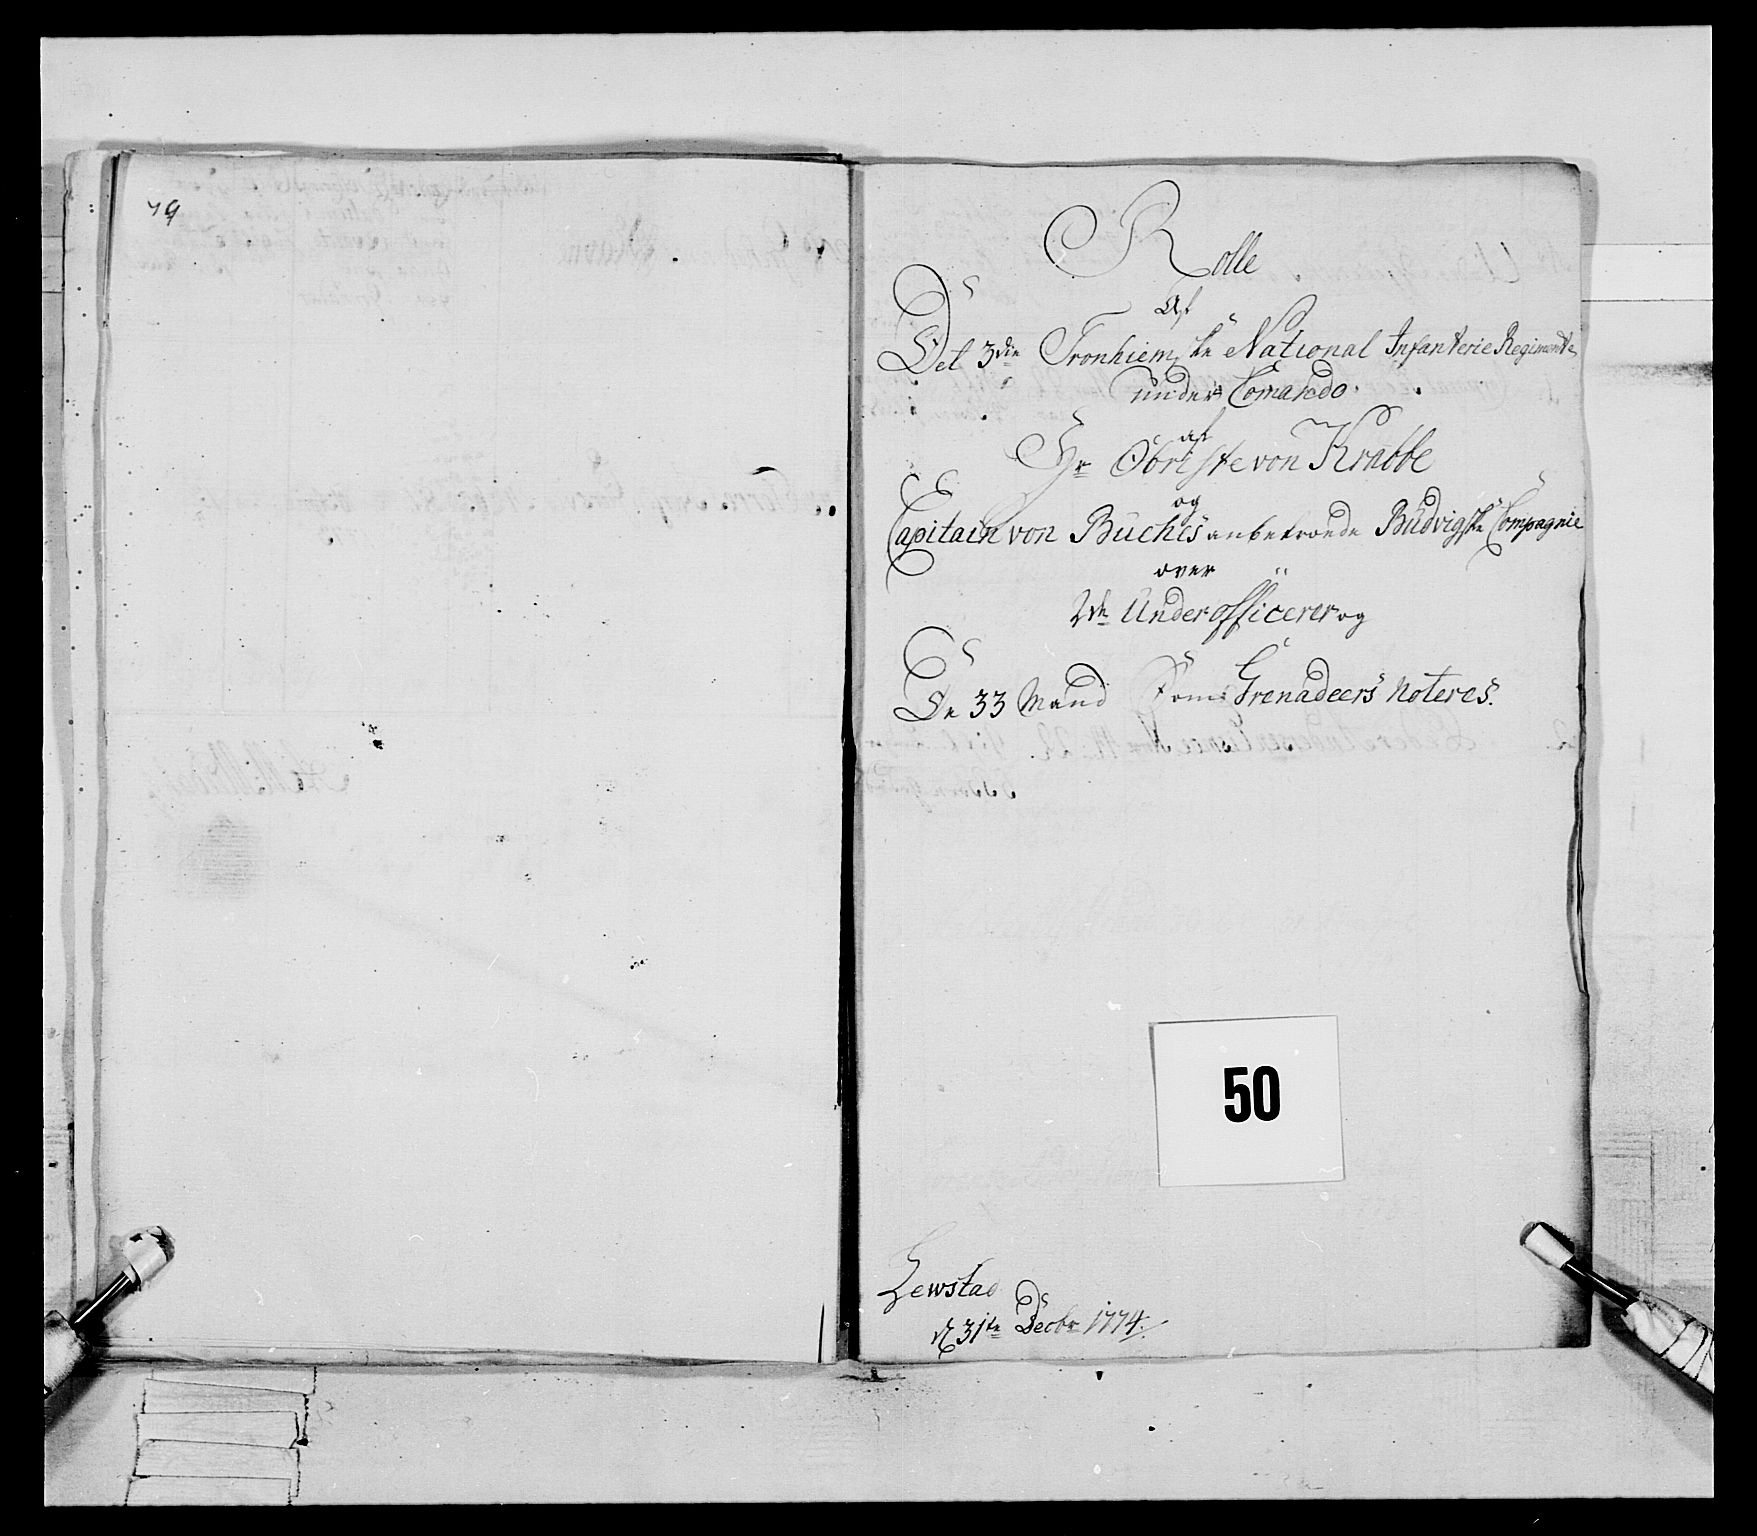 79
Rolle
Af
Det 3die Tronhiemske National Infanterie Regimente
under Comando
af
Hr Obriste von Krabbe
og
Capitain von Büchis anbetroede Büdvigske Compagnie
over
2de Underofficerer og
De 33 Mand Som Grenadeers Noteres.
50
Lewstad
d 31te Decbr 1774.